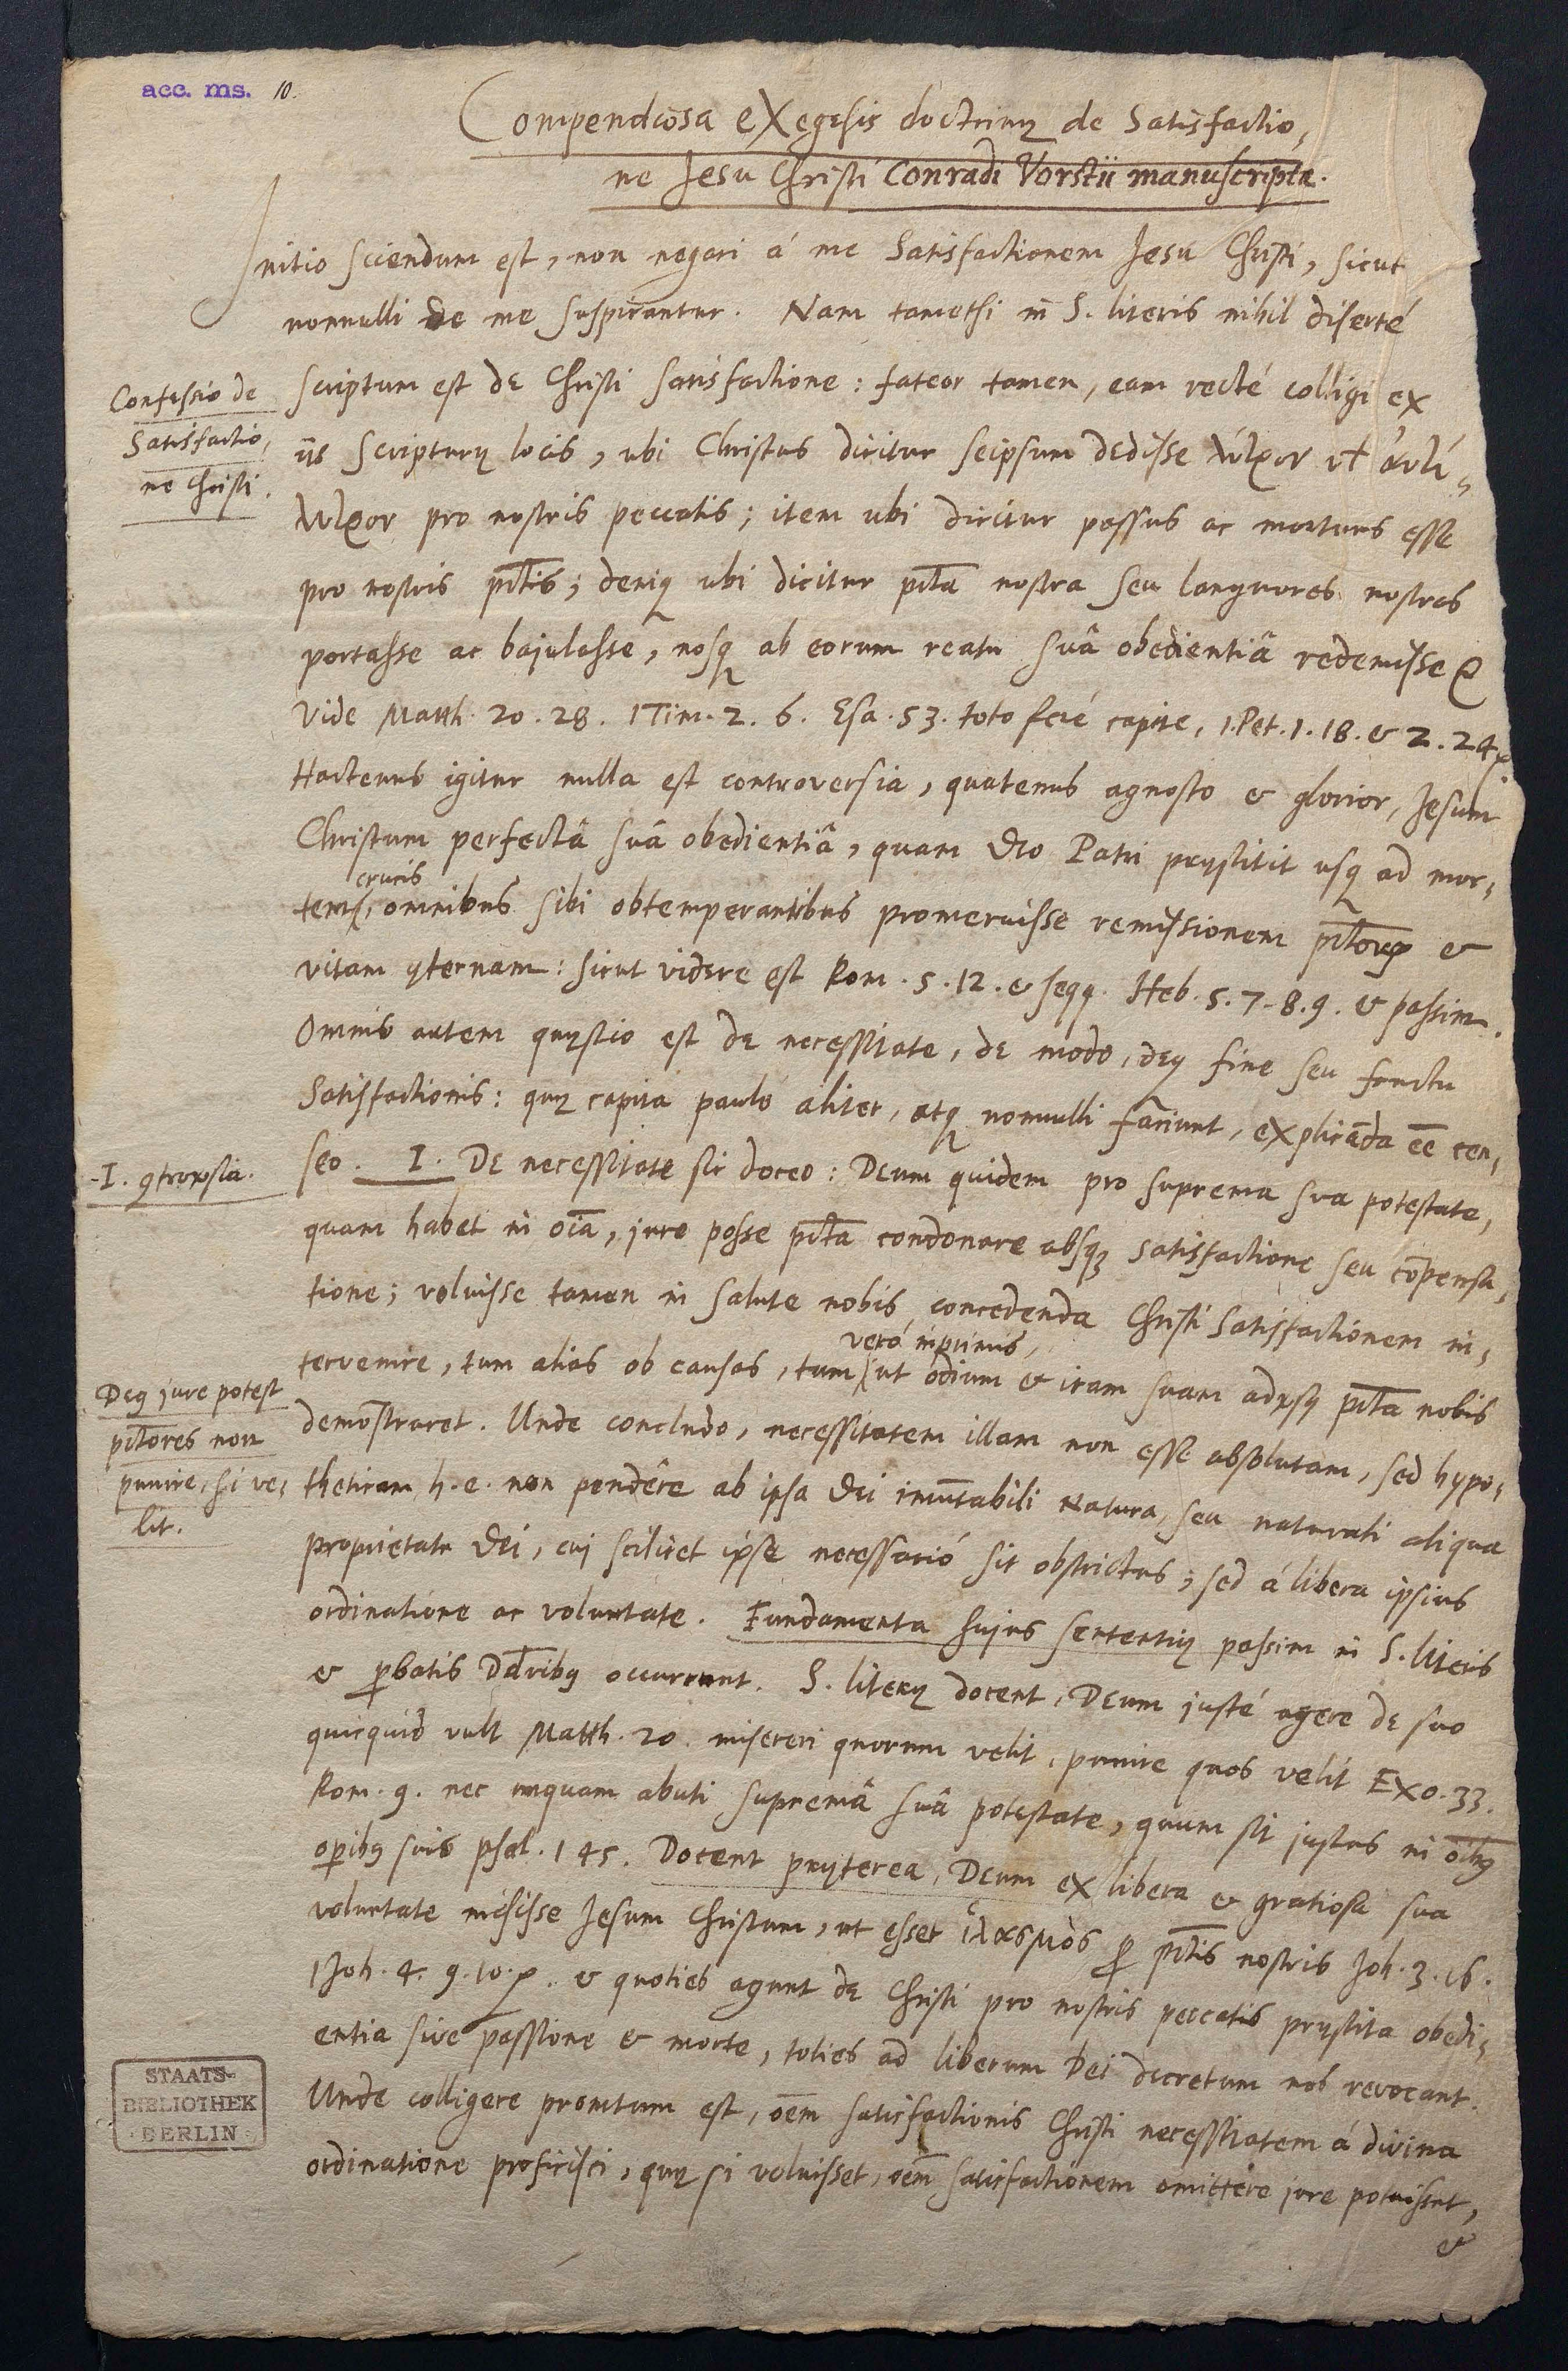 acc. ms. 10.
Compendiosa exegesis doctrinę de Satisfactio,
ne Jesu Christi Conradi Vorstii manuscripta.
Initio sciendum est, non negari á me Satisfactionem Jesu Christi, sicut
nonnulli de me suspicantur. Nam tametsi in S. literis nihil diserté
scriptum est de Christi satisfactione: fateor tamen, eam recté colligi ex
Confessio de
Satisfactio,
ne Christi.
iis Scripturę locis, ubi Christus dicitur seipsum dedisse λύτρον vel ἀντί,
λυτρον pro nostris peccatis; item ubi dicitur passus ac mortuus esse
pro nostris pctis; deniq ubi dicitur pcta nostra seu languores nostros
portasse ac bajulasse, nosq ab eorum reatu suâ obedientiâ redemisse &
Vide Matth. 20. 28. 1 Tim. 2. 6. Esa. 53. toto feré capite, 1. Pet. 1. 18. & 2. 24.
Hactenus igitur nulla est controversia, quatenus agnosco & glorior, Jesum
Christum perfectâ suâ obedientiâ, quam Deo Patri pręstitit usq ad mor,
crucis
tem, omnibus sibi obtemperantibus promeruisse remissionem pctorum &
vitam ęternam: sicut videre est Rom. 5. 12. & seqq. Heb. 5. 7. 8. 9. & passim.
Omnis autem quęstio est de necessitate, de modo, deq fine seu fructu
Satisfactionis: quę capita paulò aliter, atq nonnulli faciunt, explicāda ēē cen,
seo. I. De necessitate sic doceo: Deum quidem pro suprema sua potestate,
I. 9trovsia.
quam habet in oīa, jure posse pcta condonare absq satisfactione seu cōpensa,
tione; voluisse tamen in salute nobis concedenda Christi satisfactionem in,
veró inprimis,
tervenire, tum alias ob causas, tum ut odium & iram suam advsq pcta nobis
Deq jure potest
pctores non
punire, si ve,
lit.
demonstraret. Unde concludo, necessitatem illam non esse absolutam, sed hypo,
theticam h. e. non pendêre ab ipsa Dei imutabili natura, seu naturali aliqua
proprietate Dei, cui scilicet ipse necessarió sit obstrictus; sed á libera ipsius
ordinatione ac voluntate. Fundamenta hujus sententię passim in S. literis
& pbatis Dctribq occurrunt. S. literę docent, Deum justé agere de suo
quicquid vult Matth. 20. misereri quorum velit, punire quos velit Exo. 33.
Rom. 9. nec unquam abuti supremâ suâ potestate, quum sit justus in oībq
opibq suis psal. 145. Docent pręterea, Deum ex libera & gratiosa sua
voluntate misisse Jesum Christum, ut esset ἱλασμὸς p pctis nostris Joh. 3. 16.
1 Joh. 4. 9. 10. & quoties agunt de Christi pro nostris peccatis pręstita obedi,
entia sive passione & morte, toties ad liberum Dei decretum nos revocant.
Unde colligere promtum est, oēm satisfactionis Christi necessitatem á divina
ordinatione proficisci, quę si voluisset, oēm satisfactionem omittere jure potuisset,
&
STAATS-
BIBLIOTHEK
BERLIN